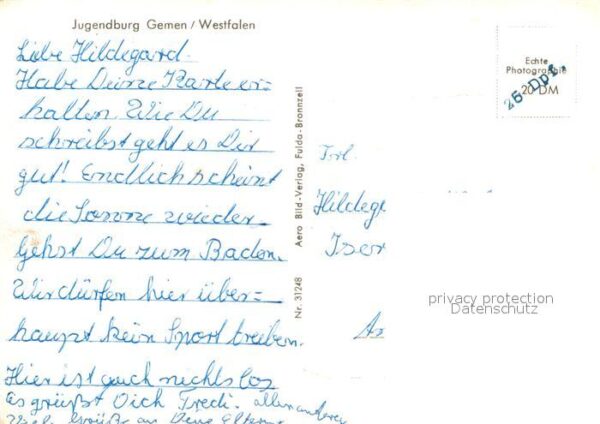 Jugendburg Gemen / Westfalen
Liebe Hildegard.
Habe Deine Karte er=
halten. Wie Du
schreibst geht es Dir
gut! Endlich scheint
die Sonne wieder
Gehst Du zum Baden.
Wir dürfen hier über=
haupt kein Sport treiben.
Hier ist auch nichts los
Es grüßt Dich Fredi.
Grüße an Deine Eltern
Aero Bild-Verlag, Fulda-Bronnzell
Nr. 31248
Echte
Photographie
20 DM
25 Dpf.
Frl.
Hildeg
Iser
An
privacy protection
Datenschutz